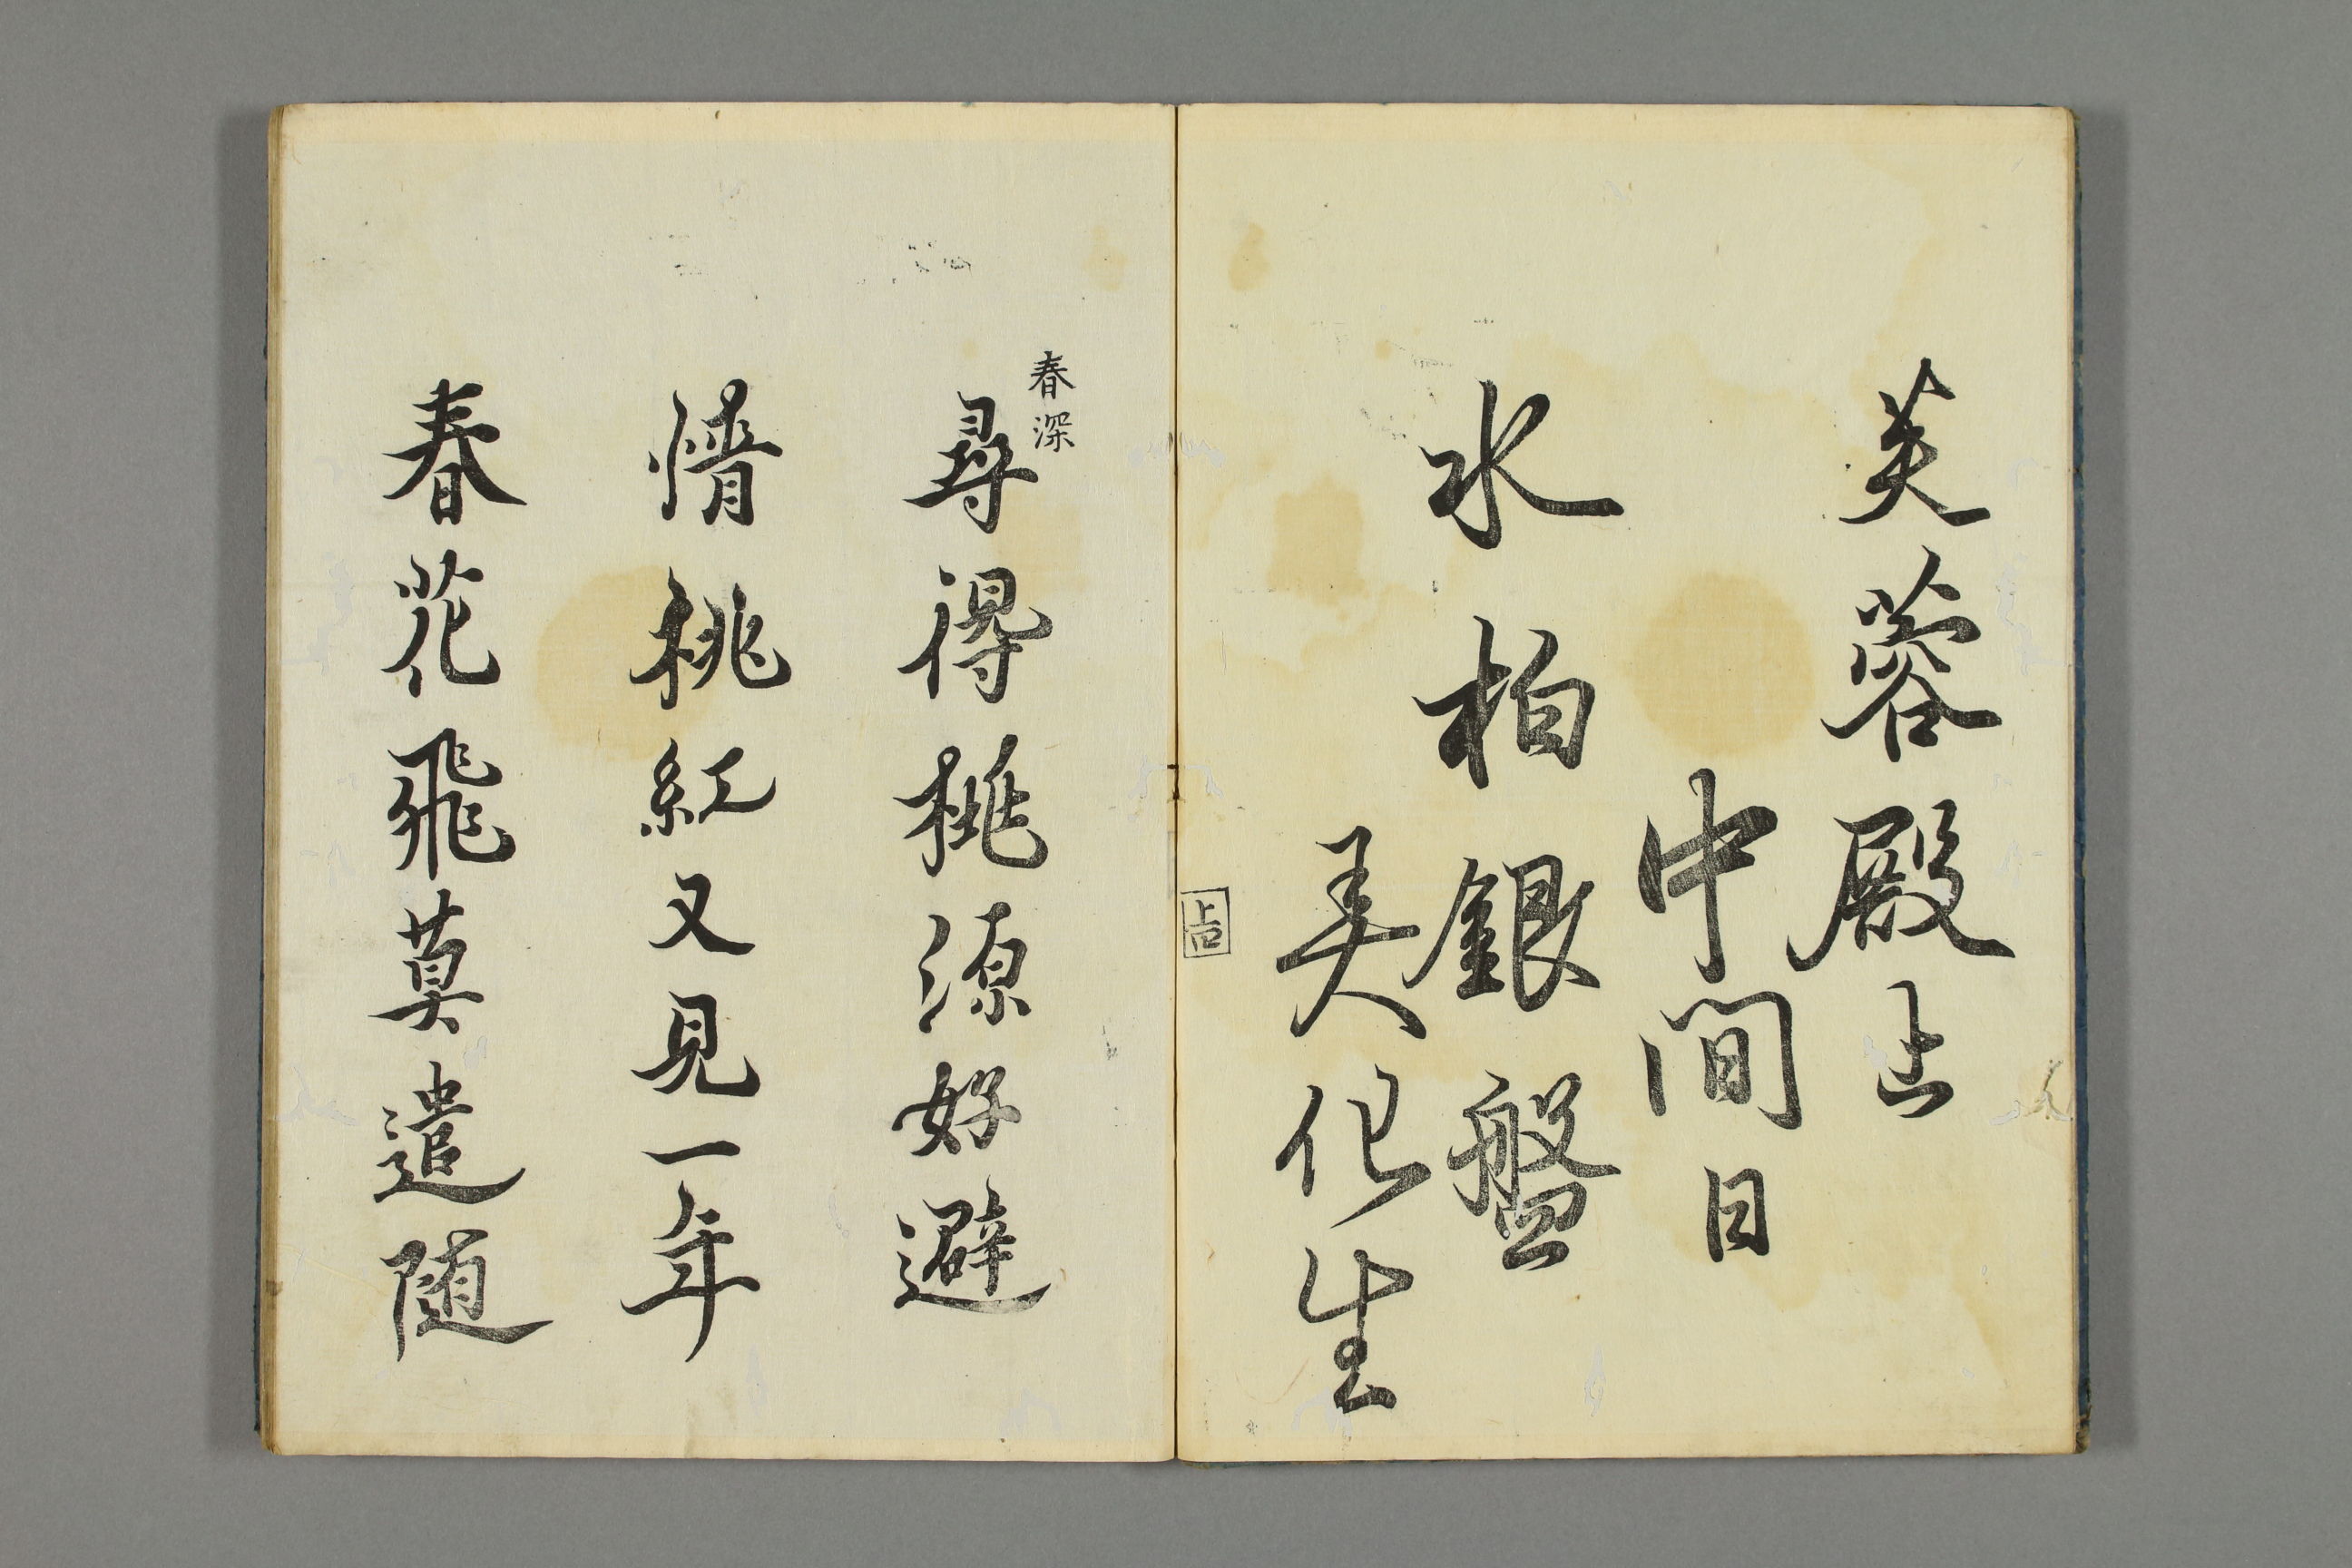 芙蓉殿上
中間日
水柏銀盤
弄化生
上口
春深
尋得桃源好避
情桃紅又見一年
春花飛莫遣随